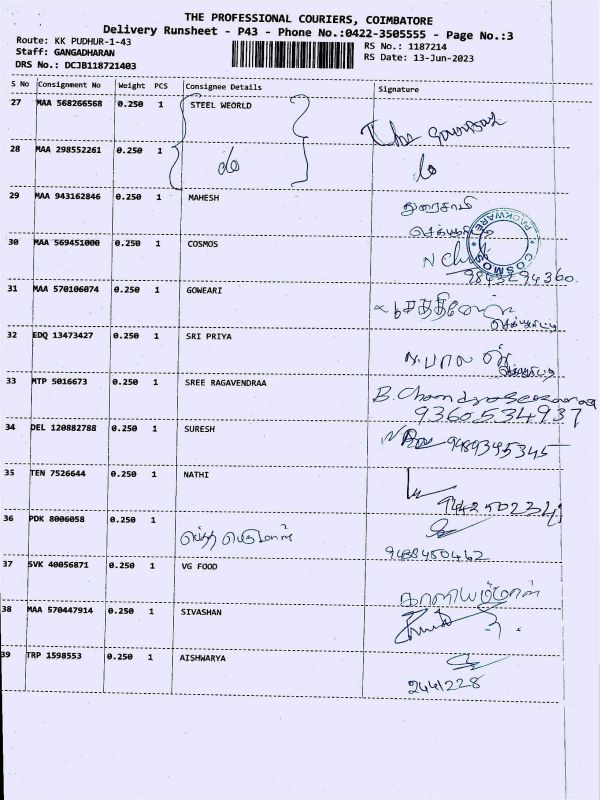 THE PROFESSIONAL COURIERS, COIMBATORE
Delivery Runsheet - P43 - Phone No.:0422-3505555 - Page No.:3
Route: KK PUDHUR-1-43
RS No.: 1187214
Staff: GANGADHARAN
RS Date: 13-Jun-2023
DRS No.: DCJB118721403
S No Consignment No Weight PCS Consignee Details Signature
27 MAA 568266568 0.250 1 STEEL WEORLD
28 MAA 298552261 0.250 1 do do
29 MAA 943162846 0.250 1 MAHESH துரைசாமி
30 MAA 569451000 0.250 1 COSMOS
COSMOS PACKWARE
9843294360
31 MAA 570106074 0.250 1 GOWEARI
32 EDQ 13473427 0.250 1 SRI PRIYA N. பால
33 MTP 5016673 0.250 1 SREE RAGAVENDRAA B. Chandrasekaran
9360534937
34 DEL 120882788 0.250 1 SURESH 9489345345
35 TEN 7526644 0.250 1 NATHI
36 PDK 8006058 0.250 1
9488450462
37 SVK 40056871 0.250 1 VG FOOD காளியம்மாள்
38 MAA 570447914 0.250 1 SIVASHAN
39 TRP 1598553 0.250 1 AISHWARYA
2441228